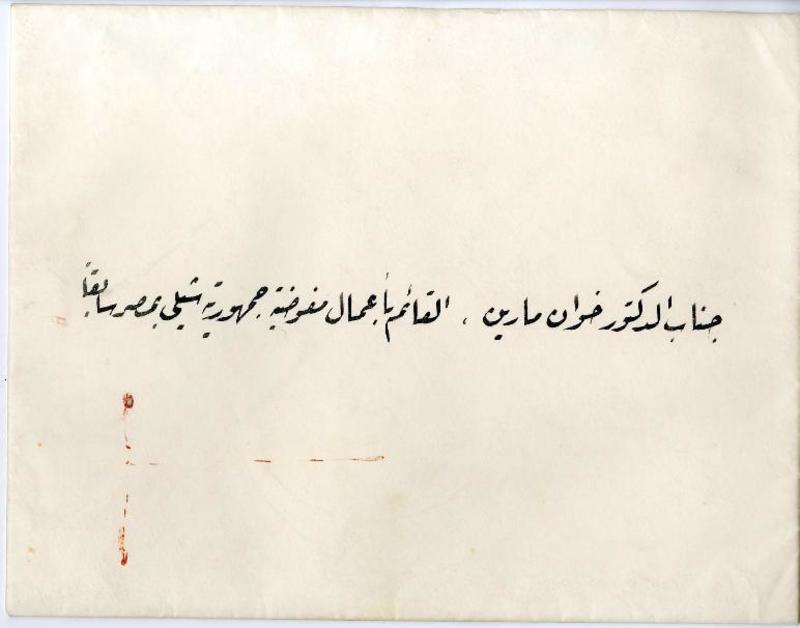 جناب الدكتور خوان مارين ، القائم بأعمال مفوضية جمهورية شيلى بمصر سابقاً